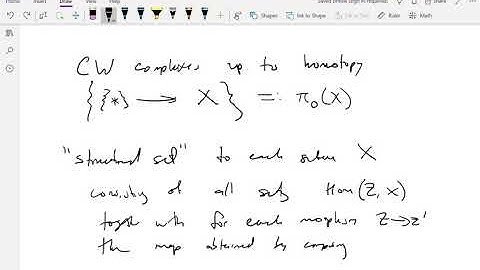 Home
Draw
View
Shapes
Ink to Shape
Ink to Text
Ruler
Math
CW complexes up to homotopy
{ {*} → X } =: π₀(X)
"structured set" to each scheme X
consisting of all sets Hom(Z, X)
together with for each morphism Z→Z'
the map obtained by composing